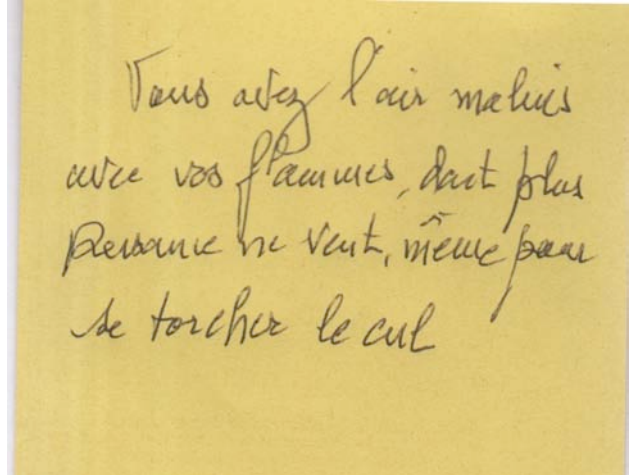 Vous avez l'air malins
avec vos flammes, dont plus
personne ne veut, même pour
se torcher le cul